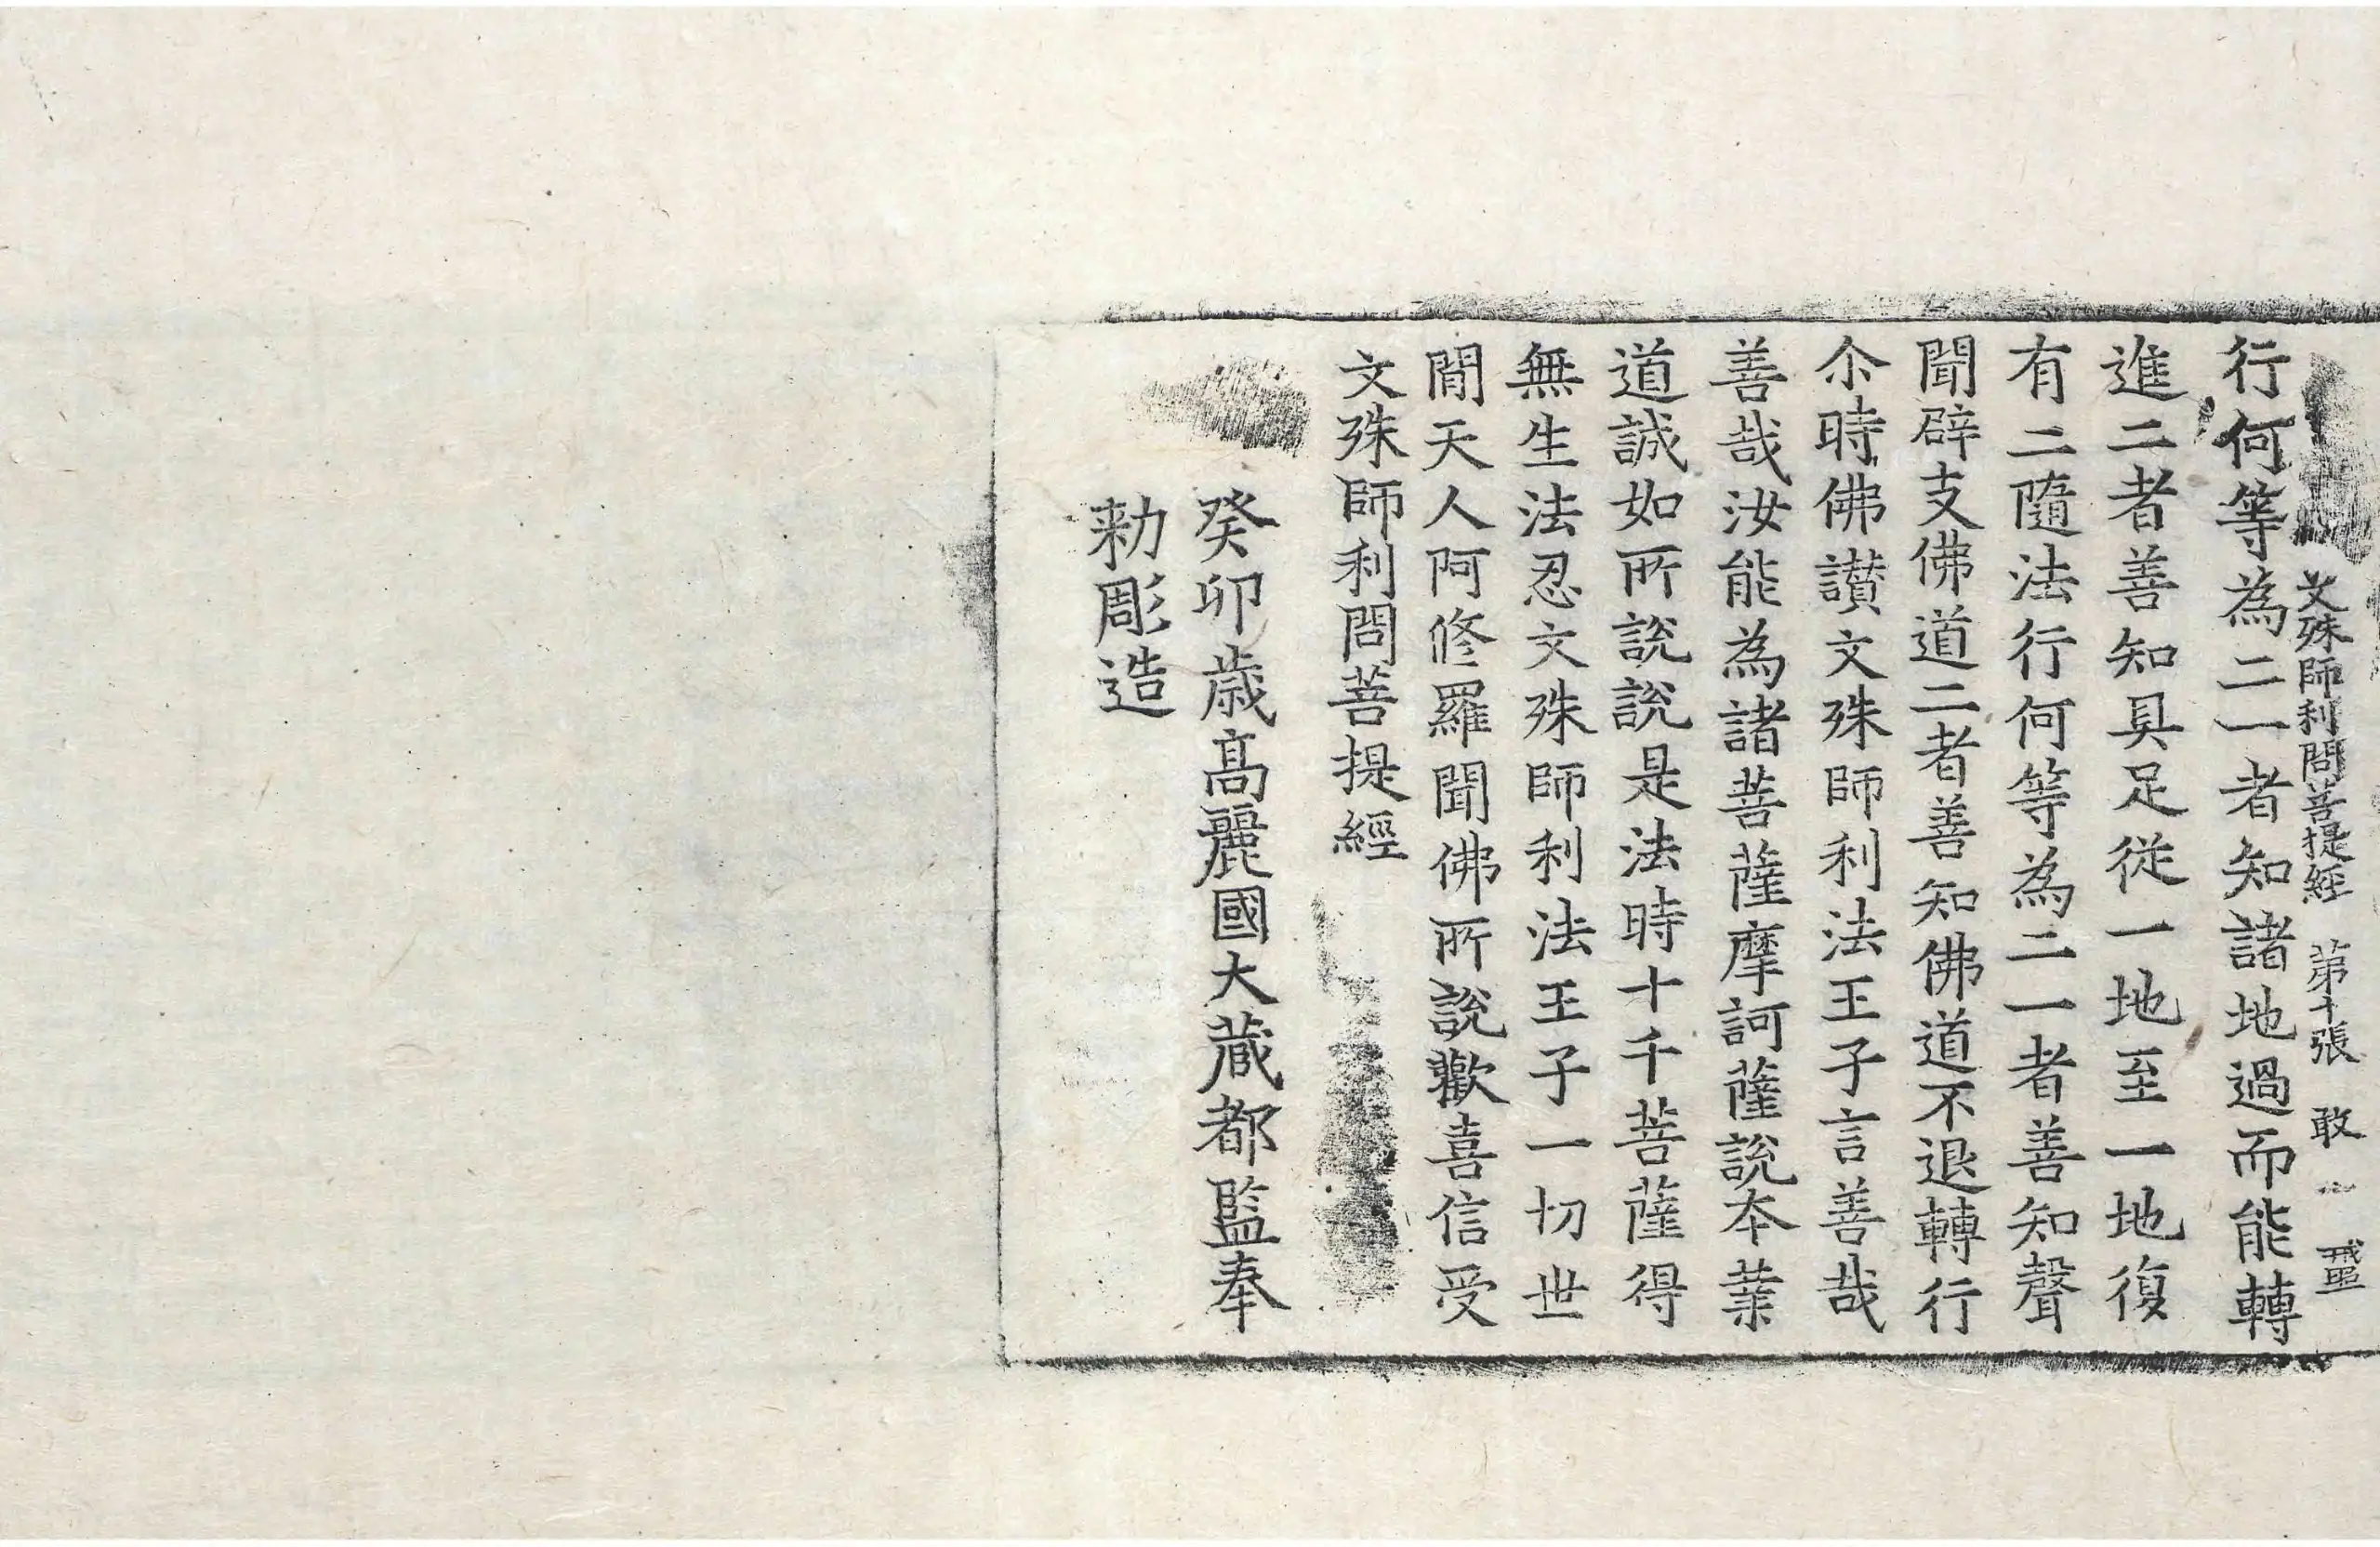 文殊師利問菩提經 第十張 敢
行何等為二一者知諸地過而能轉
進二者善知具足從一地至一地復
有二隨法行何等為二一者善知聲
聞辟支佛道二者善知佛道不退轉行
尒時佛讃文殊師利法王子言善哉
善哉汝能為諸菩薩摩訶薩說夲業
道誠如所說說是法時十千菩薩得
無生法忍文殊師利法王子一切世
閒天人阿修羅聞佛所說歡喜信受
文殊師利問菩提經
癸卯歲高麗國大藏都監奉
勑彫造